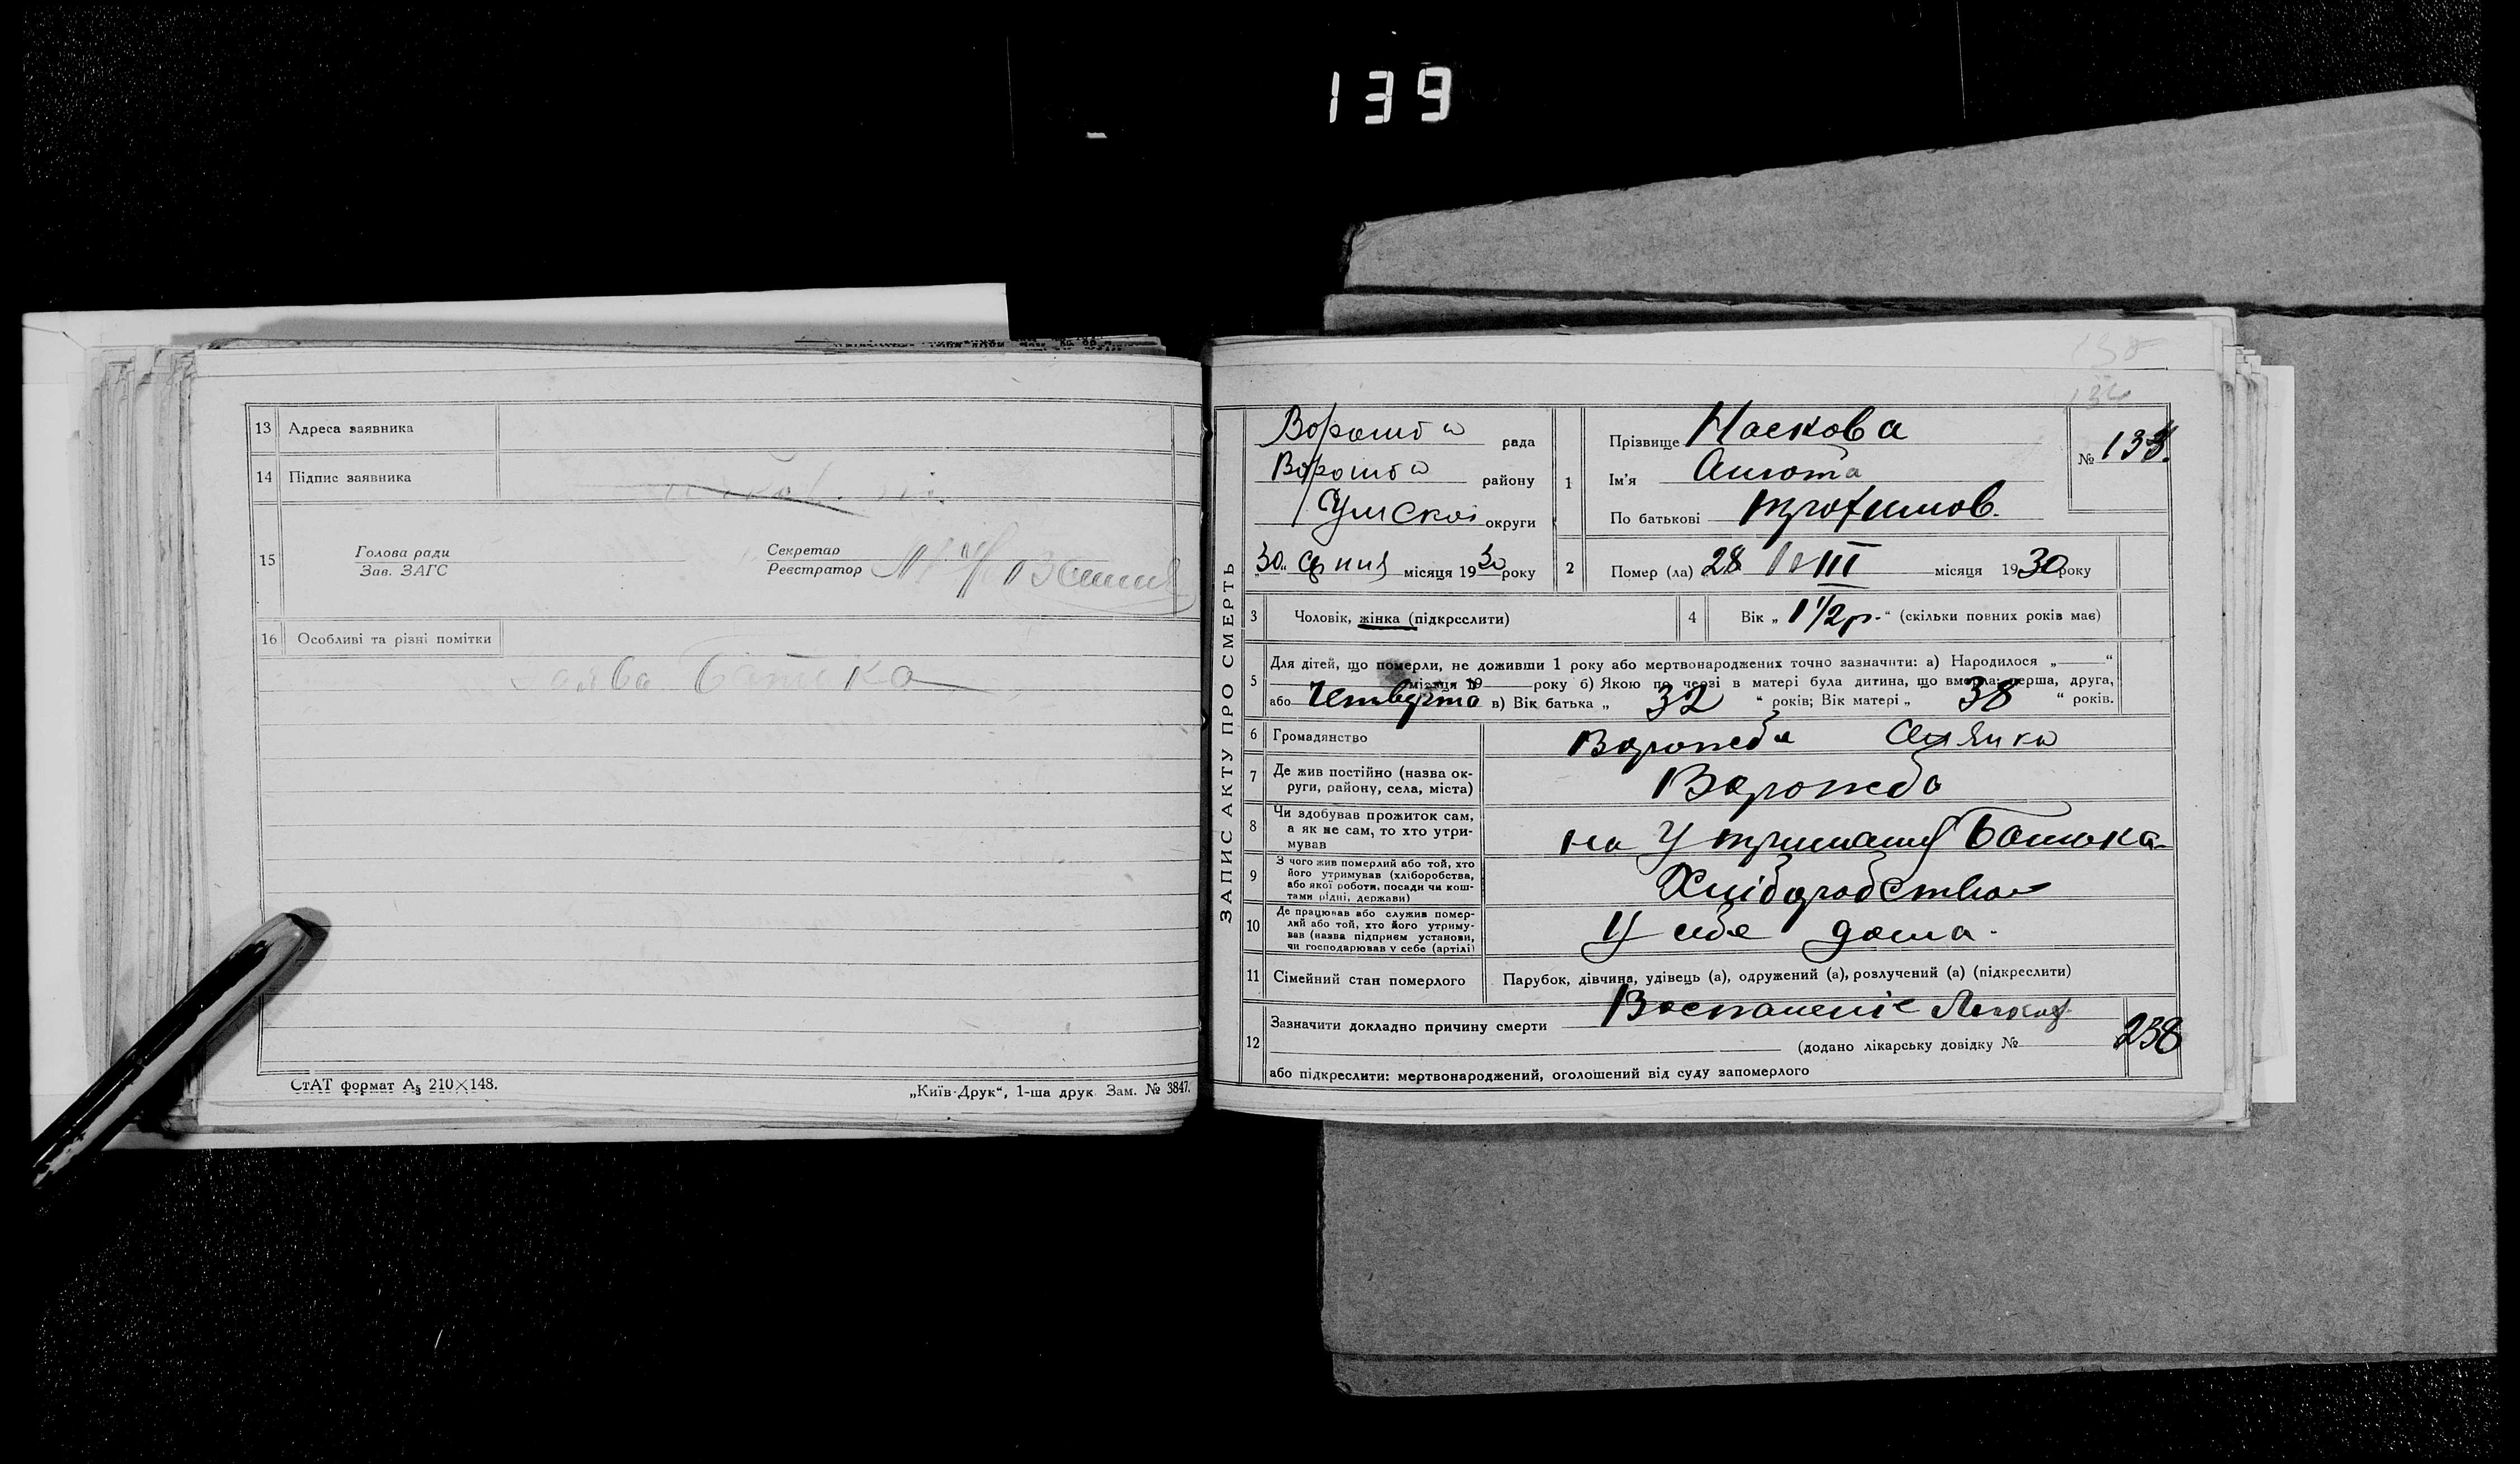 139
13 Адреса заявника
14 Підпис заявника
15 Голова ради
Зав. ЗАГС
Секретар
Реєстратор
16 Особливі та різні помітки
СтАТ формат А5 210×148.
„Київ-Друк“, 1-ша друк. Зам. № 3847.
ЗАПИС АКТУ ПРО СМЕРТЬ
Ворожба рада
Ворожба району
Сумской округи
„30“ серпня місяця 1930 року
1 Прізвище Наскова
Ім'я Анюта
По батькові Трофимов.
№ 133.
2 Помер (ла) 28 VIII місяця 1930 року
3 Чоловік, жінка (підкреслити)
4 Вік „1 1/2 р.“ (скільки повних років має)
5 Для дітей, що померли, не доживши 1 року або мертвонароджених точно зазначити: а) Народилося „ “
місяця 19 року б) Якою по черзі в матері була дитина, що вмерла: перша, друга,
або Четверта в) Вік батька „ 32 “ років; Вік матері „ 38 “ років.
6 Громадянство Ворожба Селянка
7 Де жив постійно (назва ок-
руги, району, села, міста) Ворожба
8 Чи здобував прожиток сам,
а як не сам, то хто утри-
мував на Утриманні батька
9 З чого жив померлий або той, хто
його утримував (хліборобства,
або якої роботи, посади чи кош-
тами рідні, держави) Хліборобство
10 Де працював або служив помер-
лий або той, хто його утриму-
вав (назва підприєм установи,
чи господарював у себе (артілі) У себе дома.
11 Сімейний стан померлого Парубок, дівчина, удівець (а), одружений (а), розлучений (а) (підкреслити)
12 Зазначити докладно причину смерти Воспаленіе Легких
(додано лікарську довідку № 238
або підкреслити: мертвонароджений, оголошений від суду запомерлого